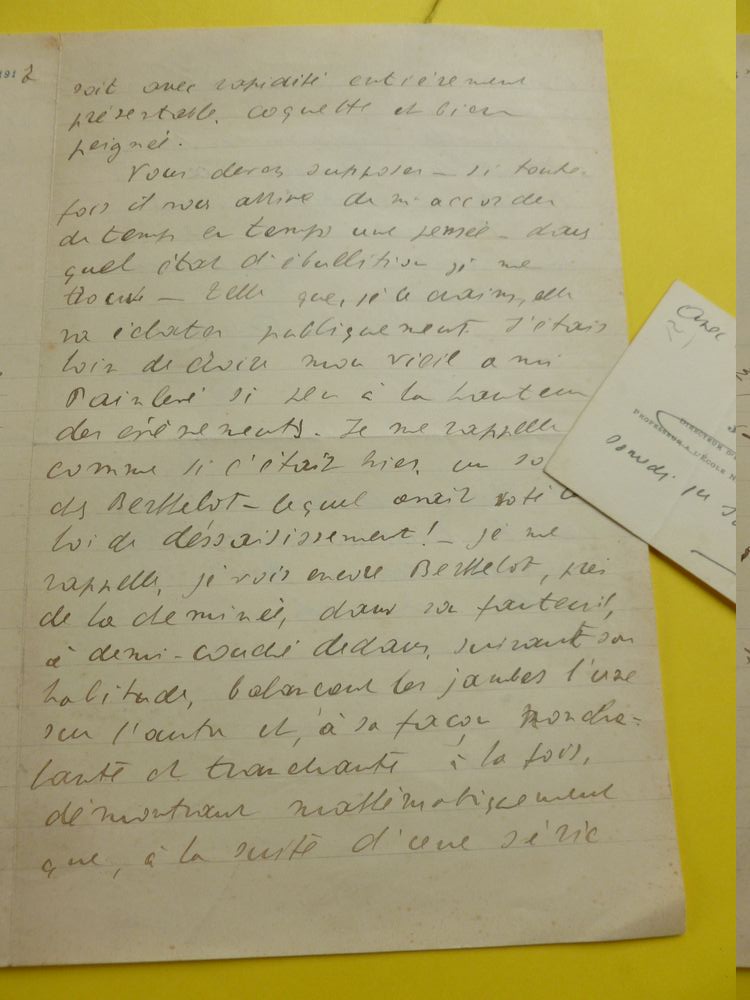 1917
soit avec rapidité entièrement
présentable, coquette et bien
peignée.
Vous devez supposer – si toute-
fois il vous arrive de m'accorder
de temps en temps une pensée – dans
quel état d'ébullition je me
trouve – Telle que, je le crains, elle
va éclater publiquement. J'étais
loin de croire mon vieil ami
Painlevé si peu à la hauteur
des événements. Je me rappelle
comme si c'était hier, un
des Berthelot – lequel avait voté
loi de déssaisissement! – je me
rappelle, je vois encore Berthelot, près
de la cheminée, dans un fauteuil,
à demi-couché dedans, suivant son
habitude, balançant les jambes l'une
sur l'autre et, à sa façon noncha-
lante et tranchante à la fois,
démontrant mathématiquement
que, à la suite d'une série
Avec
DIRECTEUR D
PROFESSEUR A L'ÉCOLE N